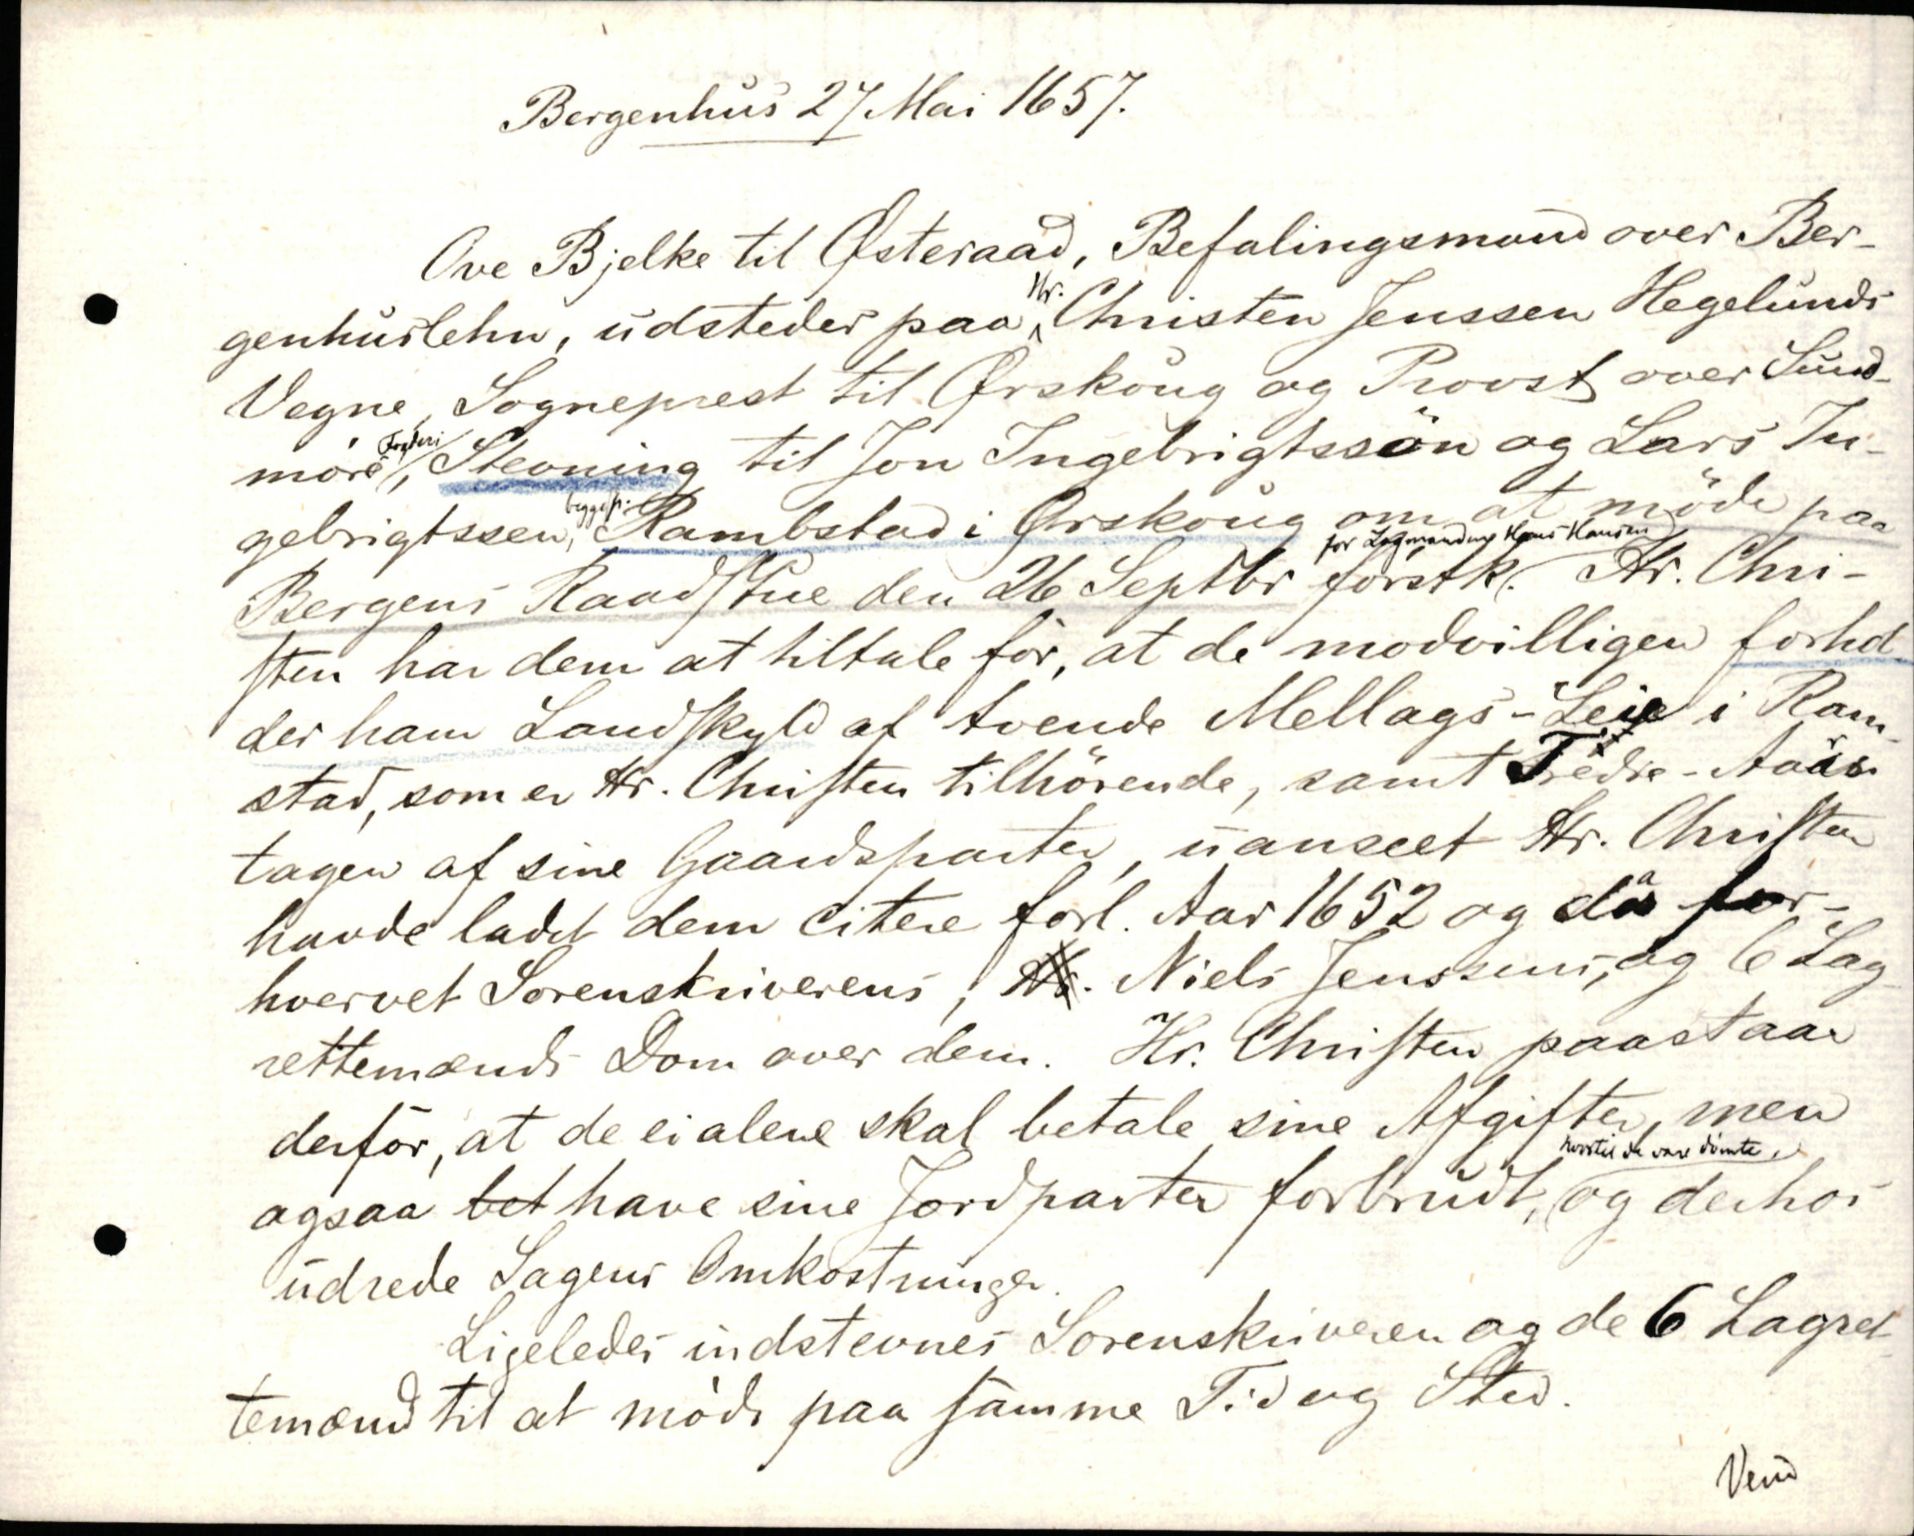 Bergenhus 27 Mai 1657.
Ove Bjelke til Østeraad, Befalingsmand over Ber-
genhuslehn, udsteder paa Hr. Christen Jenssen Hegelunds
Vegne, Sogneprest til Ørskoug og Provst over Sund-
möre Fogderi, Stevning til Jon Ingebrigtssön og Lars In-
gebrigtssen, begge p. Rambstad i Ørskoug om at möde paa
Bergens Raadstue den 26 Septbr förstk. for Lagmanden Hans Hansen. Hr. Chri-
sten har dem at tiltale for, at de modvilligen forhol
der ham Landskyld af tvende Mellags-Leie i Ram-
stad, som er Hr. Christen tilhörende, samt Tredie-Aars
tagen af sine Gaardsparter, uanseet Hr. Christen
havde ladet dem citere forl. Aar 1652 og da for-
hvervet Sorenskriverens, Hr. Niels Jenssens, og 6 Lag
rettemænds Dom over dem. Hr. Christen paastaar
derfor, at de ei alene skal betale sine Afgifter, men
ogsaa bet have sine Jordparter forbrudt, hvortil de vare dömte, og derhos
udrede Sagens Omkostninger.
Ligeledes indstevnes Sorenskriveren og de 6 Lagret
temænd til at möde paa samme Tid og Sted.
Vend